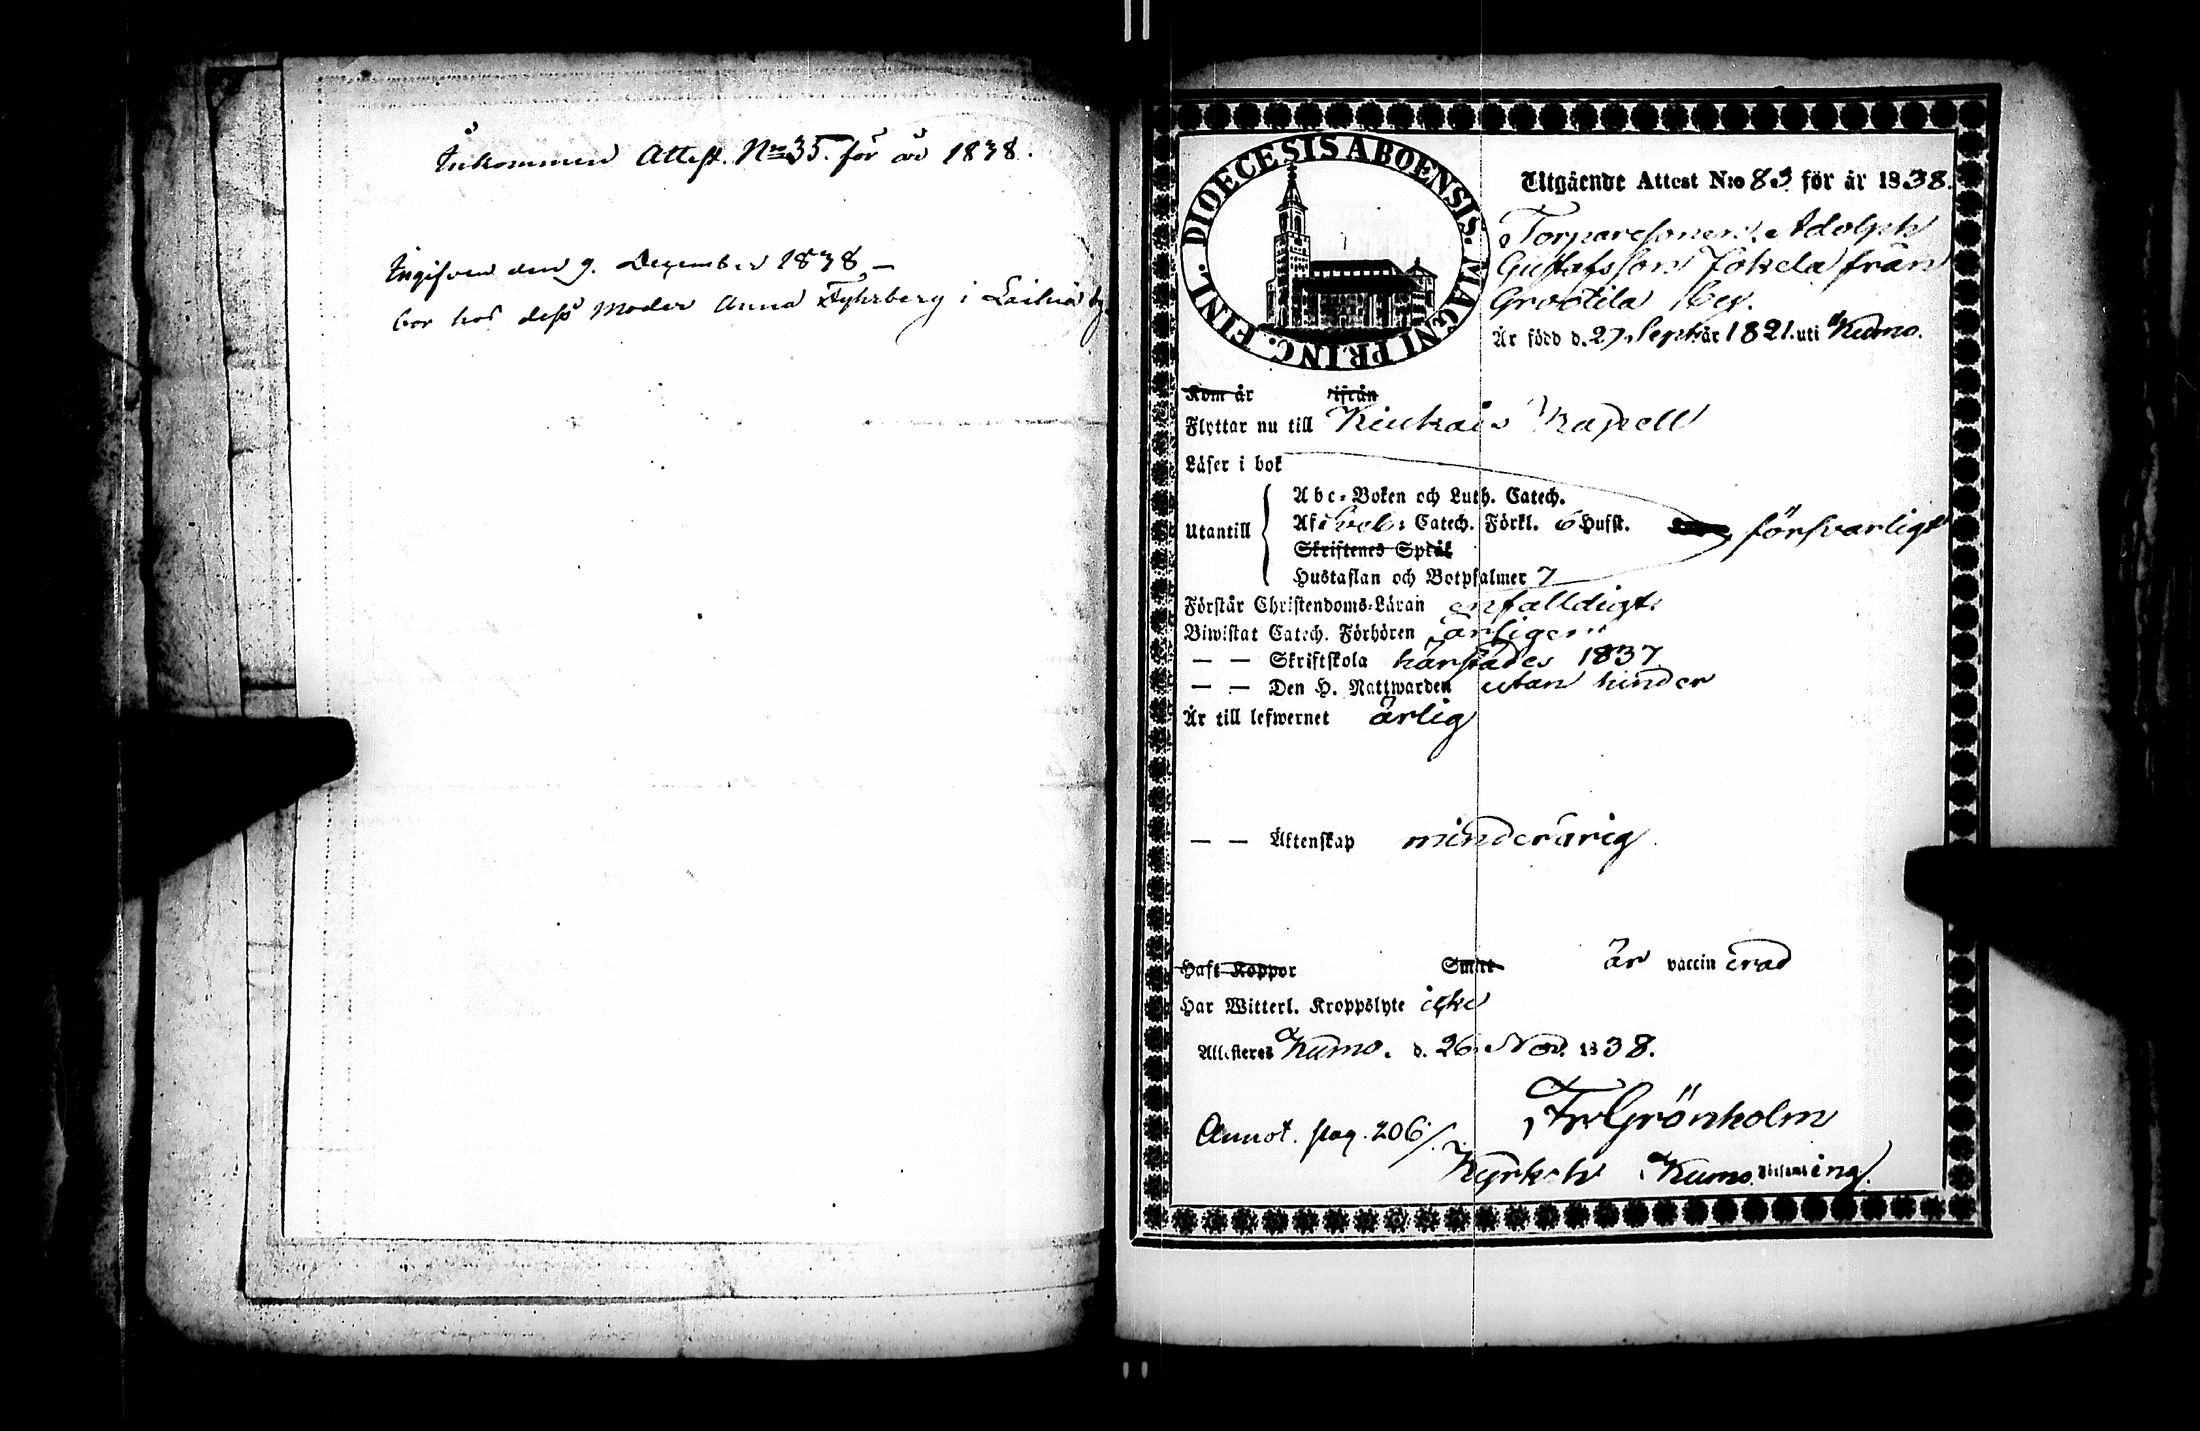 Inkommen Attest. Nro 35. för år 1838.
Ingifven den 9. December 1838,-
bor hos dess Moder Anna Fyhrberg i Laihia by
DIOECESIS ABOENSIS. MAGNI PRINC. FINL.
Utgående Attest N:o 83 för år 1838.
Torparesonen Adolph
Gustafsson Jokela från
Grootila by.
Är född d. 27 Sept. år 1821. uti Kumo.
Kom år ifrån
Flyttar nu till Kiukais Kapell
Läser i bok
Abc-Boken och Luth. Catech.
Utantill Catech. Förkl. 6 Hufst. försvarligt
Skriftenes Språk
Hustaflan och Botpsalmer 7
Förstår Christendoms-Läran enfalldigt
Biwistat Catech. Förhören årligen
— — Skriftskola härstädes 1837
— — Den H. Nattwarden utan hinder
Är till lefwernet ärlig
— — Äktenskap minderårig
Haft Koppor Smitt är vaccinerad
Har Witterl. Kroppslyte icke
Attesteres Kumo. d. 26 Nov. 1838.
Fr Grönholm
Annot. pag. 206/.
Kyrkoh Kumo